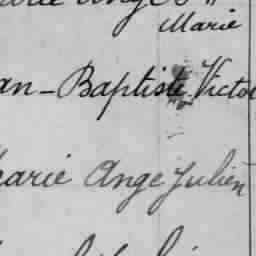 Marie
an-Baptiste Victo
arie Ange Julien